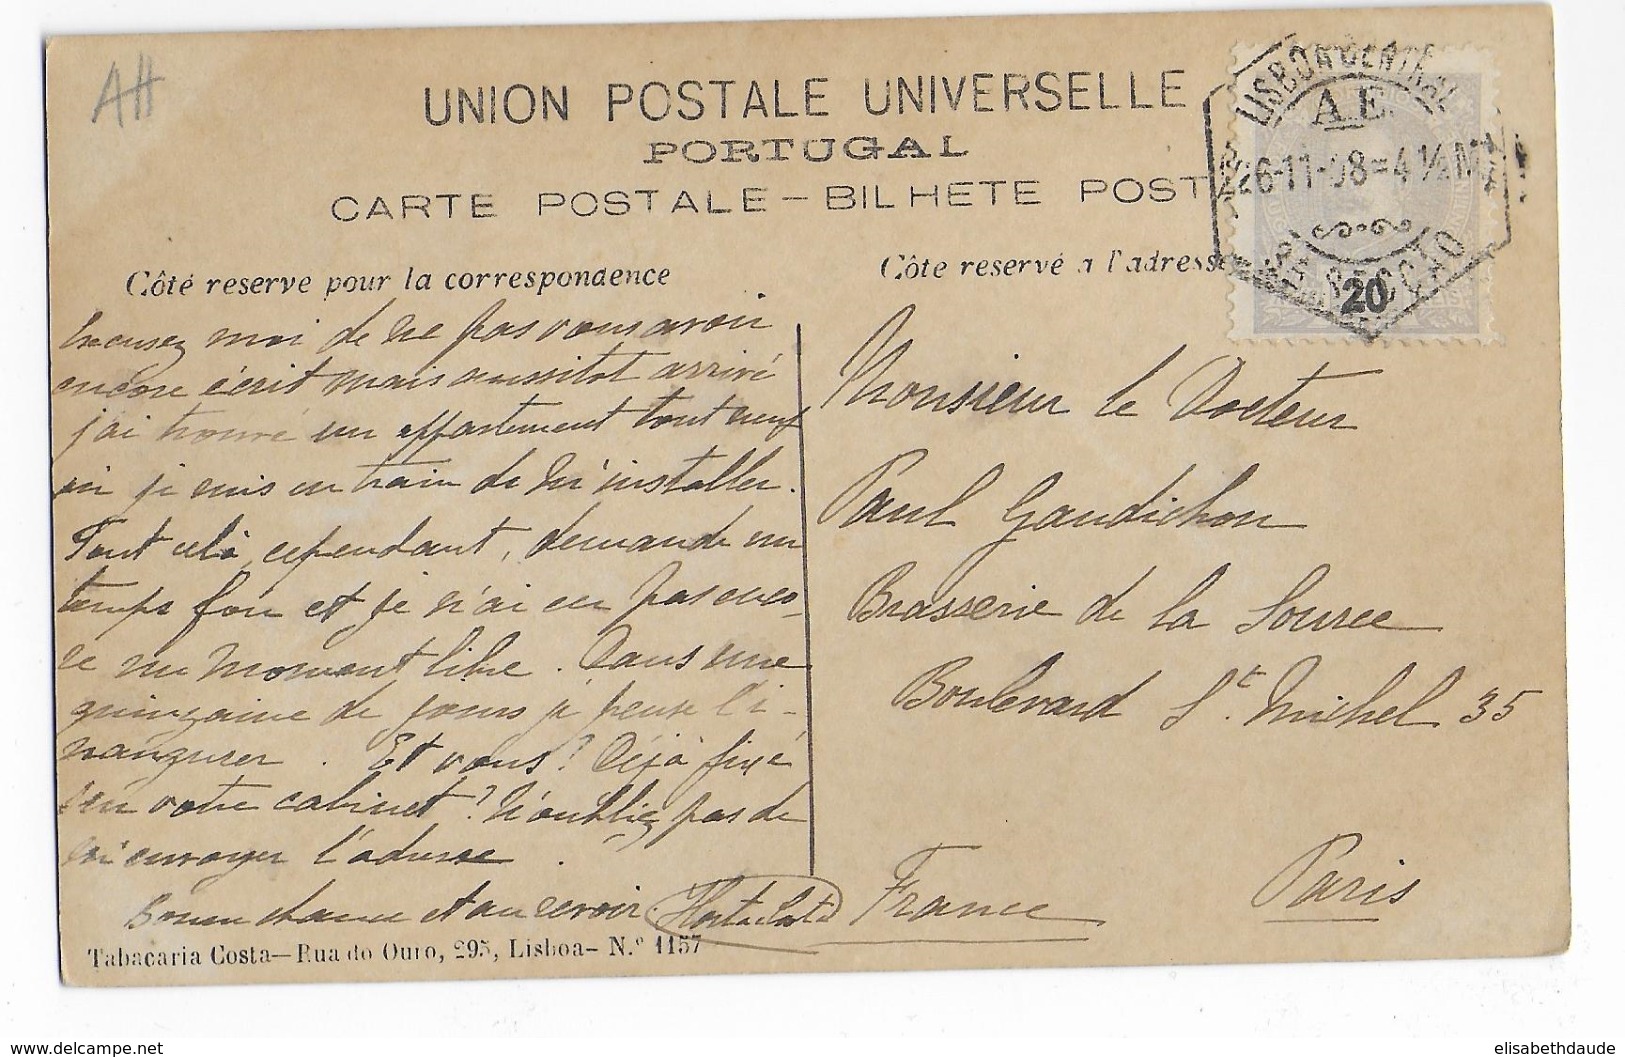 AH
UNION POSTALE UNIVERSELLE
PORTUGAL
CARTE POSTALE – BILHETE POSTA
LISBOA CENTRAL
A E
26-11-08=4 ½ M
SECÇÃO
20
Côté reserve pour la correspondence
Côte reservé a l'adresse
Excusez moi de ne pas vous avoir
encore écrit mais aussitot arrivé
j'ai trouvé un appartement tout neuf
où je suis en train de m'installer.
Tout cela, cependant, demande un
temps fou et je n'ai eu pas enco-
re un moment libre. Dans une
quinzaine de jours je peux l'i-
naugurer. Et vous? Déjà fixé
sur votre cabinet? N'oubliez pas de
m'envoyer l'adresse.
Bonne chance et au revoir.
Monsieur le Docteur
Paul Gaudichon
Brasserie de la Source
Boulevard St. Michel 35
Paris
France
Tabacaria Costa—Rua do Ouro, 295, Lisboa– N.º 1157
www.delcampe.net
elisabethdaude